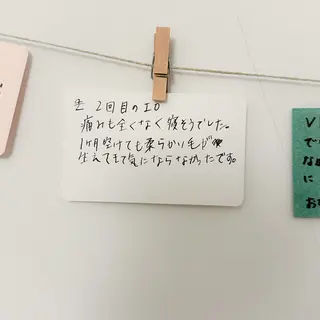 2回目のIO
痛みも全くなく寝そうでした。
1ヶ月空けても柔らかい毛が
生えてきて気にならなかったです。
V
で
な
に